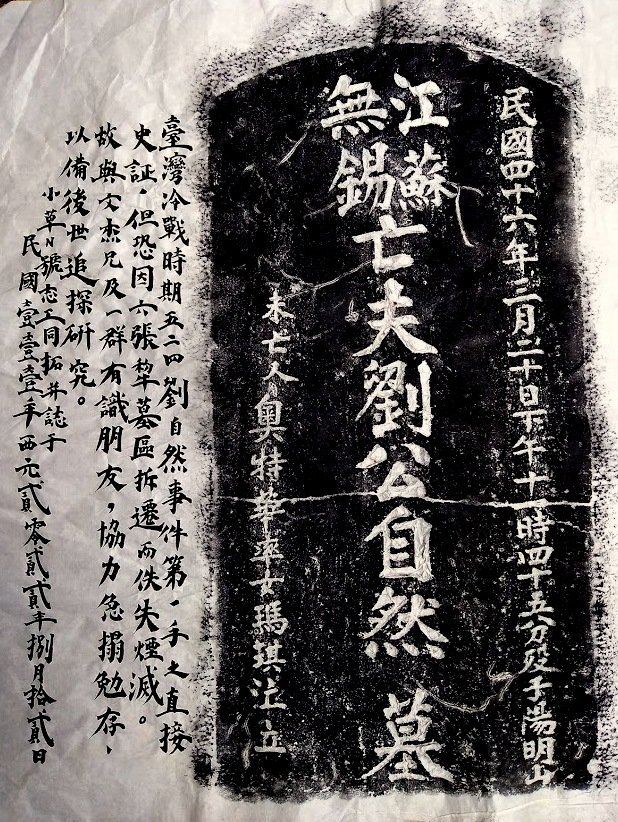 民國四十六年三月二十日下午十一時四十五分歿于陽明山
江蘇
無錫
亡夫劉公自然 墓
未亡人奧特華率女瑪琪泣立
臺灣冷戰時期五二四劉自然事件第一手之直接
史証，但恐因六張犂墓區拆遷而佚失煙滅。
故與文杰兄及一群有識朋友，協力急搨勉存，
以備後世追探研究。
小草N號志工同拓并誌于
民國壹壹壹年西元貳零貳貳年捌月拾貳日